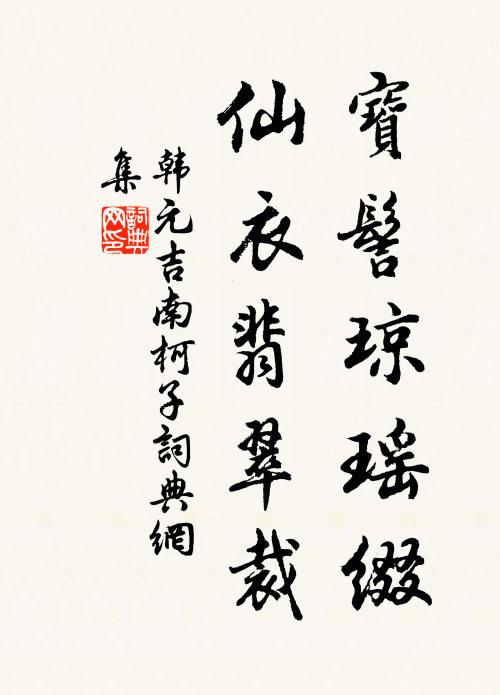 寶髻琼瑶綴
仙衣翡翠裁
韩元吉南柯子詞典網
集
詞典
网印